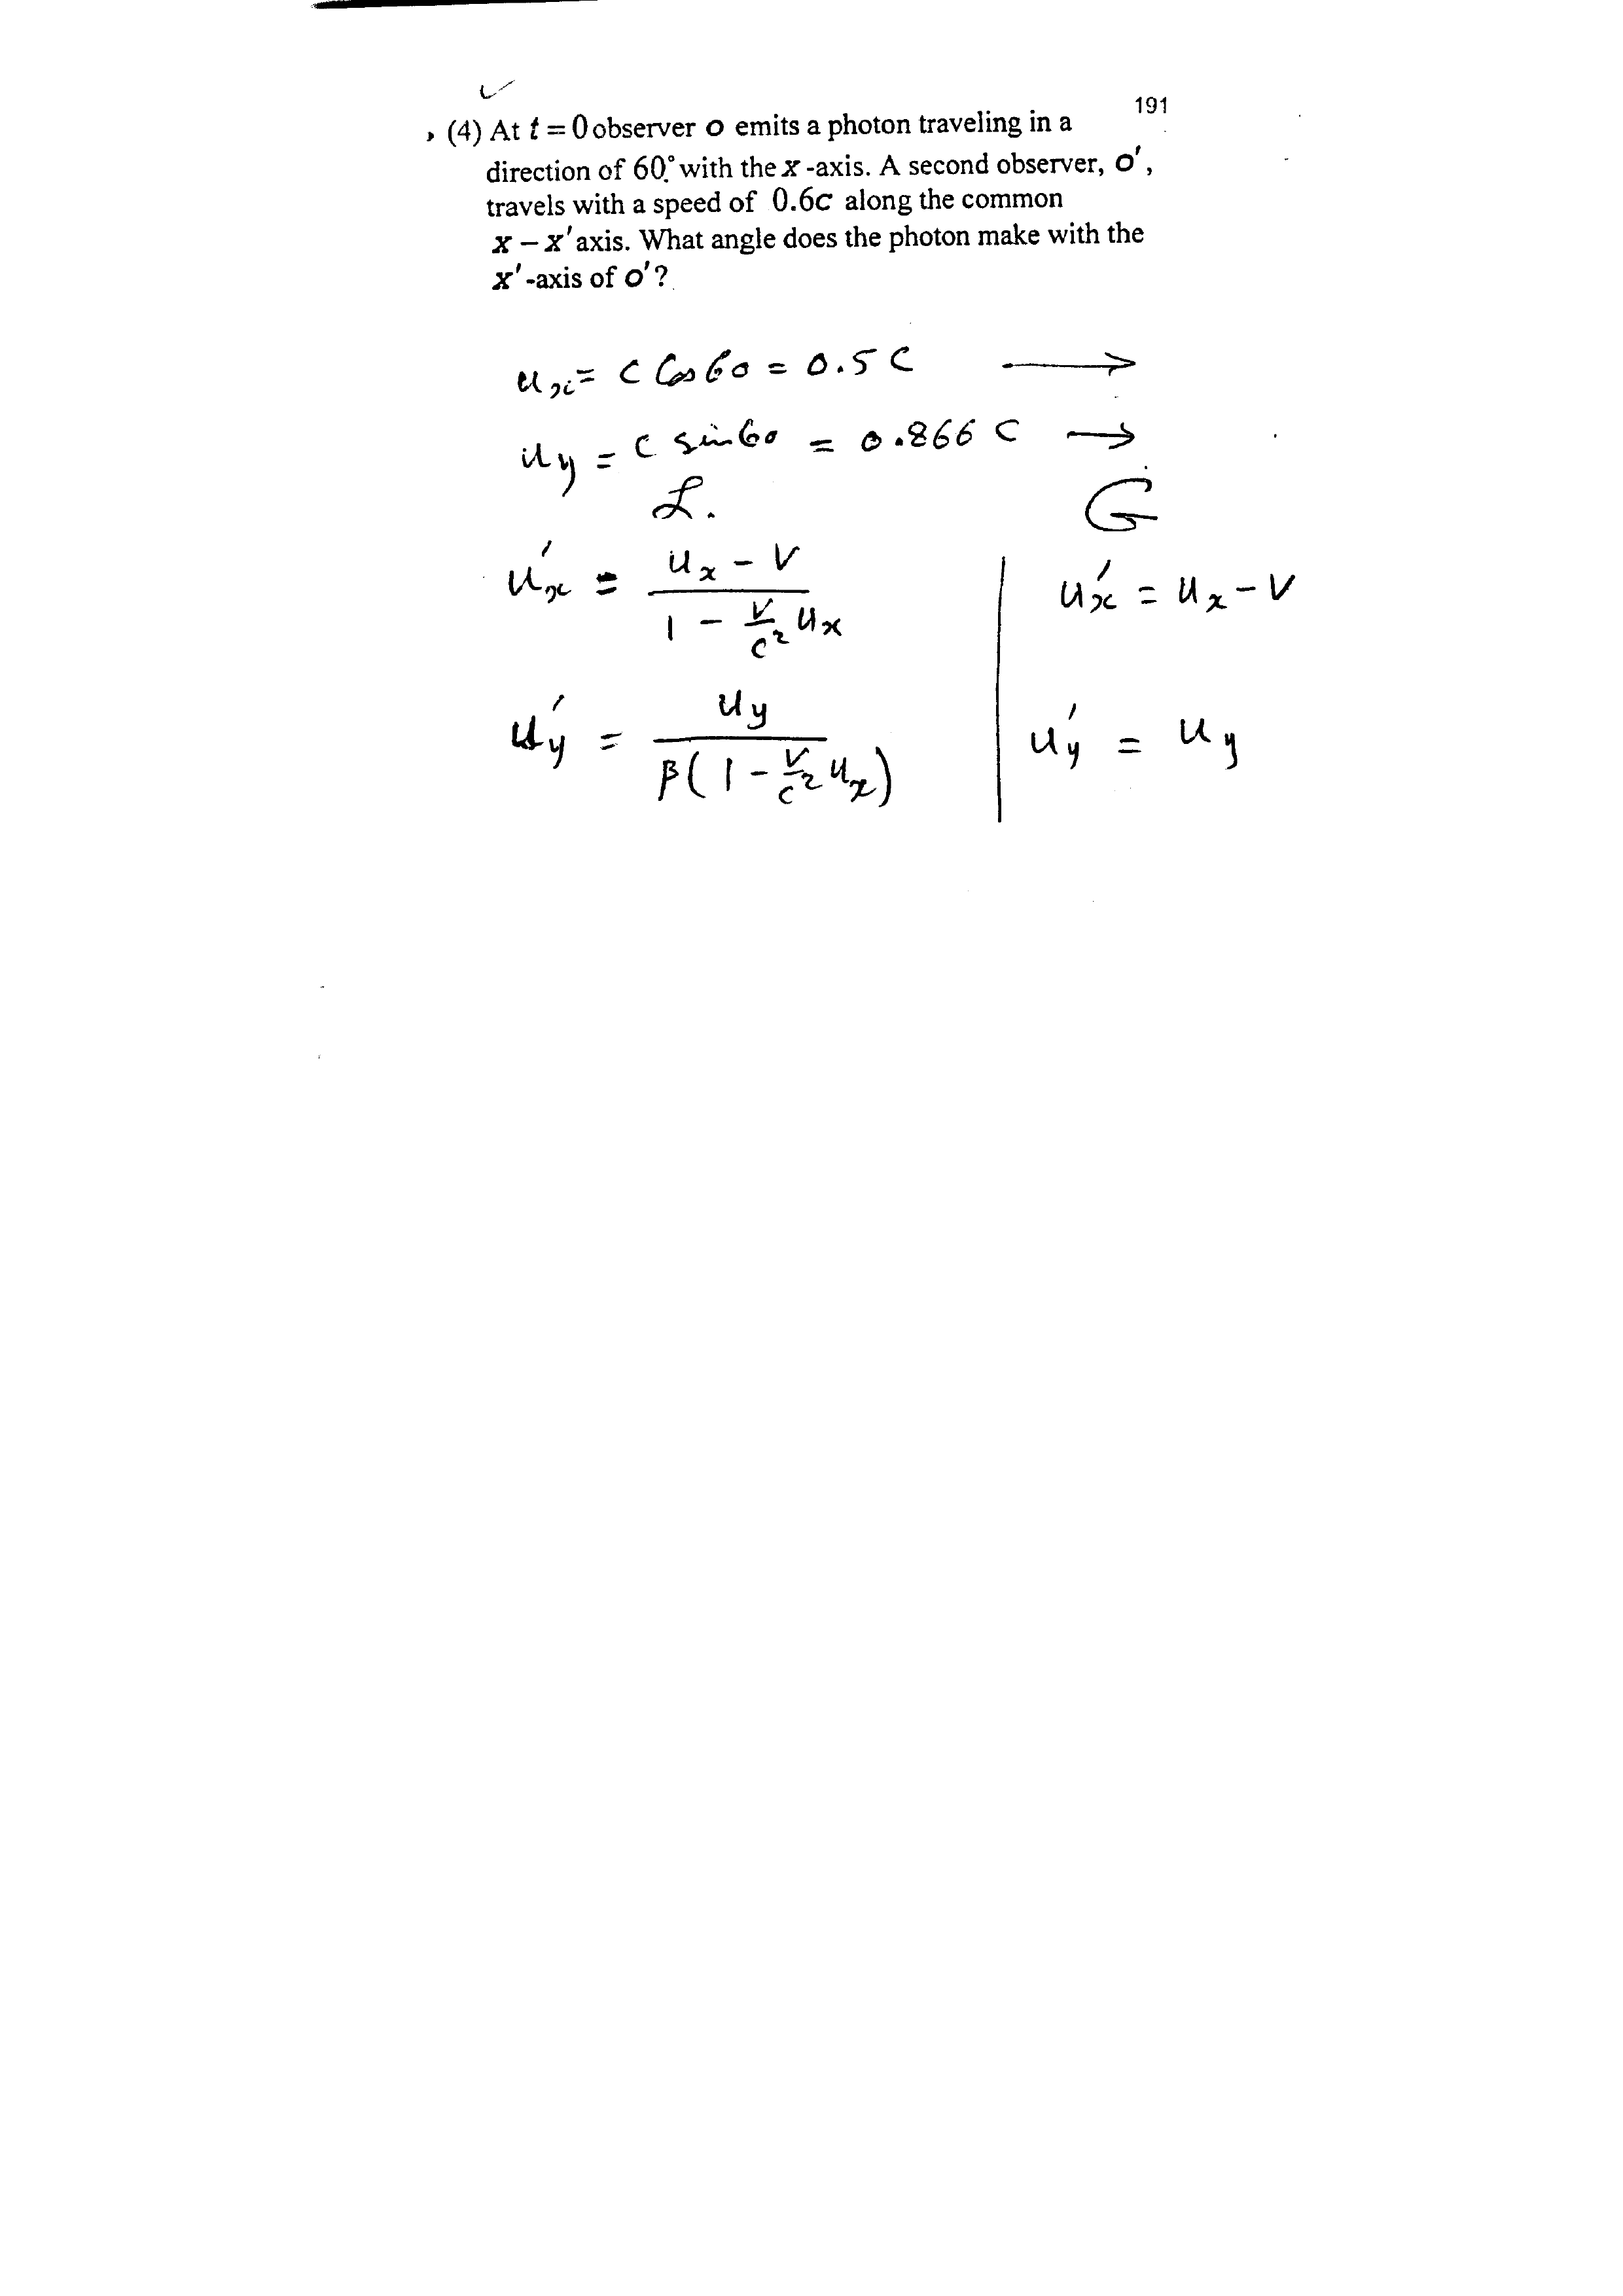 191
(4) At t = 0 observer o emits a photon traveling in a
direction of 60° with the x -axis. A second observer, o',
travels with a speed of 0.6c along the common
x – x' axis. What angle does the photon make with the
x' -axis of o'?
u_x = c Cos 60 = 0.5 c ⟶
u_y = c sin 60 = 0.866 c ⟶
L. G
u'_x = (u_x - v) / (1 - v/c² u_x) | u'_x = u_x - v
u'_y = u_y / (β(1 - v/c² u_x)) | u'_y = u_y